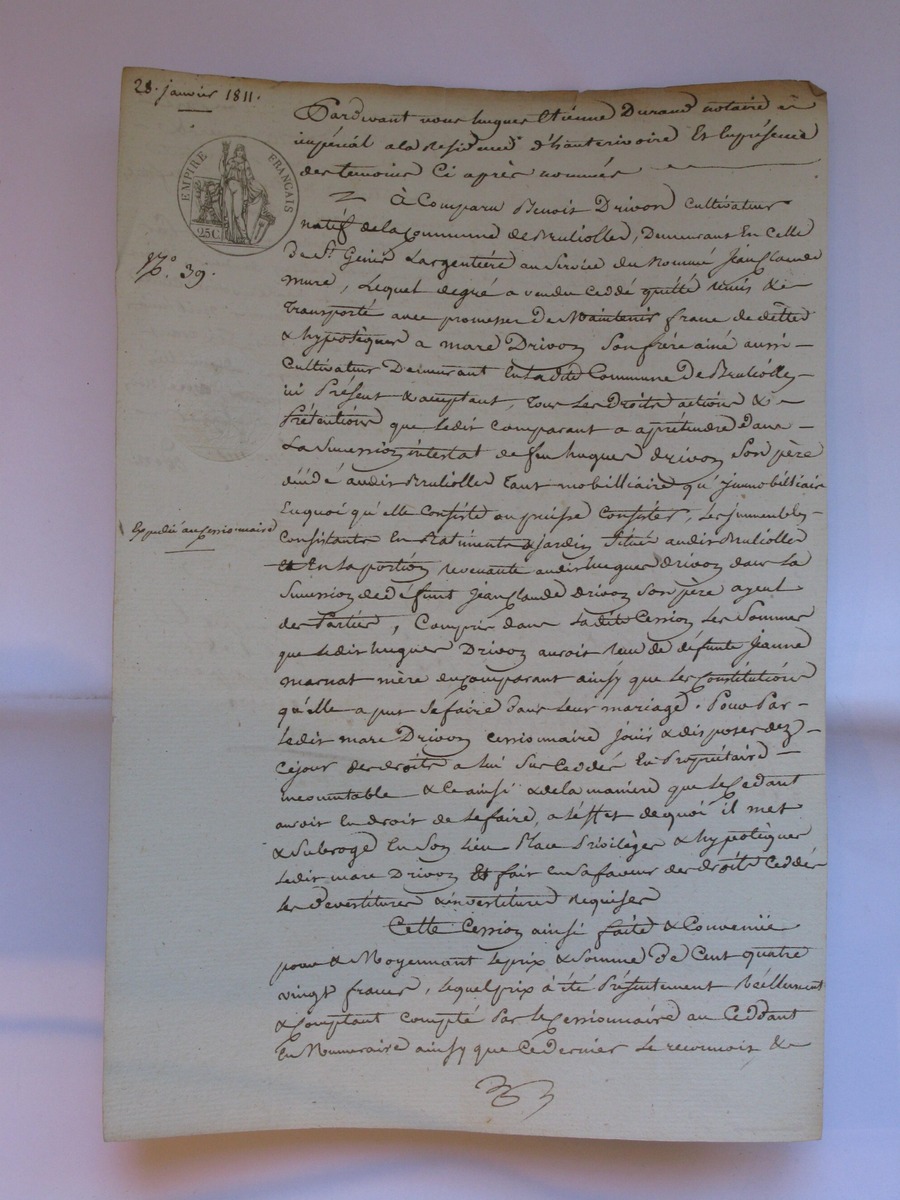 28. janvier 1811.
Pardevant nous hugues Etienne Durand notaire
impérial a la Residence d'hauterivoire Et En présence
des temoins Ci après nommés
EMPIRE FRANÇAIS
25C
À Comparu Benoit Drivon Cultivateur
natif de la Commune de Brullolles, Demeurant En Celle
De St. Genis Largentière au Service du Nommé Jean Claude
N.o 39.
mure, Lequel de gré a vendu Ceddé quitté remis &
Transporté avec promesse De Maintenir franc de dettes
& hypotèques a marc Drivon Son frère ainé aussi
Cultivateur Demeurant En la dite Commune De Brullolles
ici Présent & acceptant, Tous les Droits actions &
Prétentions que ledit Comparant a a prétendre Dans
La Succession intestat de feu hugues drivon Son père
décédé audit Brullolles Tant mobilliaire qu'jmmobilliaire
En quoi qu'elle Consiste ou puisse Consister, les jmmeubles
Expedié au Cessionnaire
Consistants En Batiments & jardin Situés audit Brullolles
& En la portion revenante audit hugues drivon dans la
Succession de défunt jean Claude drivon Son père ayeul
des Parties, Compris dans ladite Cession les Sommes
que ledit hugues Drivon auroit reçu de défunte jeanne
marnat mère du Comparant ainsy que les Constitutions
qu'elle a put Se faire Dans leur mariage. Pour Par
ledit marc Drivon Cessionnaire jouir & disposer dez
Cejour des droits a lui Sus Ceddés En Propriétaire
incomutable & Ce ainsi & de la maniere que le Cedant
auroit Eu droit de le faire, a l'éffet de quoi il met
& Subroge En Son Lieu Place Privilèges & hypotèques
ledit marc Drivon Et fait En Sa faveur des droits Ceddés
les devestitures & investitures Requises
Cette Cession ainsi faite & Convenüe
pour & Moyennant le prix & Somme De Cent quatre
vingt francs, lequel prix a été Présentement Réellement
& Comptant Compté Par le Cessionnaire au Ceddant
En Numeraire ainsy que Ce dernier le reconnoit &